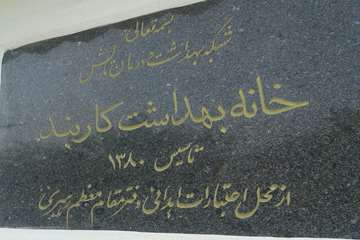 بسمه تعالی
شبکه بهداشت و درمان تالش
خانه بهداشت کاربند
تاسیس ۱۳۸۰
از محل اعتبارات اهدائی دفتر مقام معظم رهبری